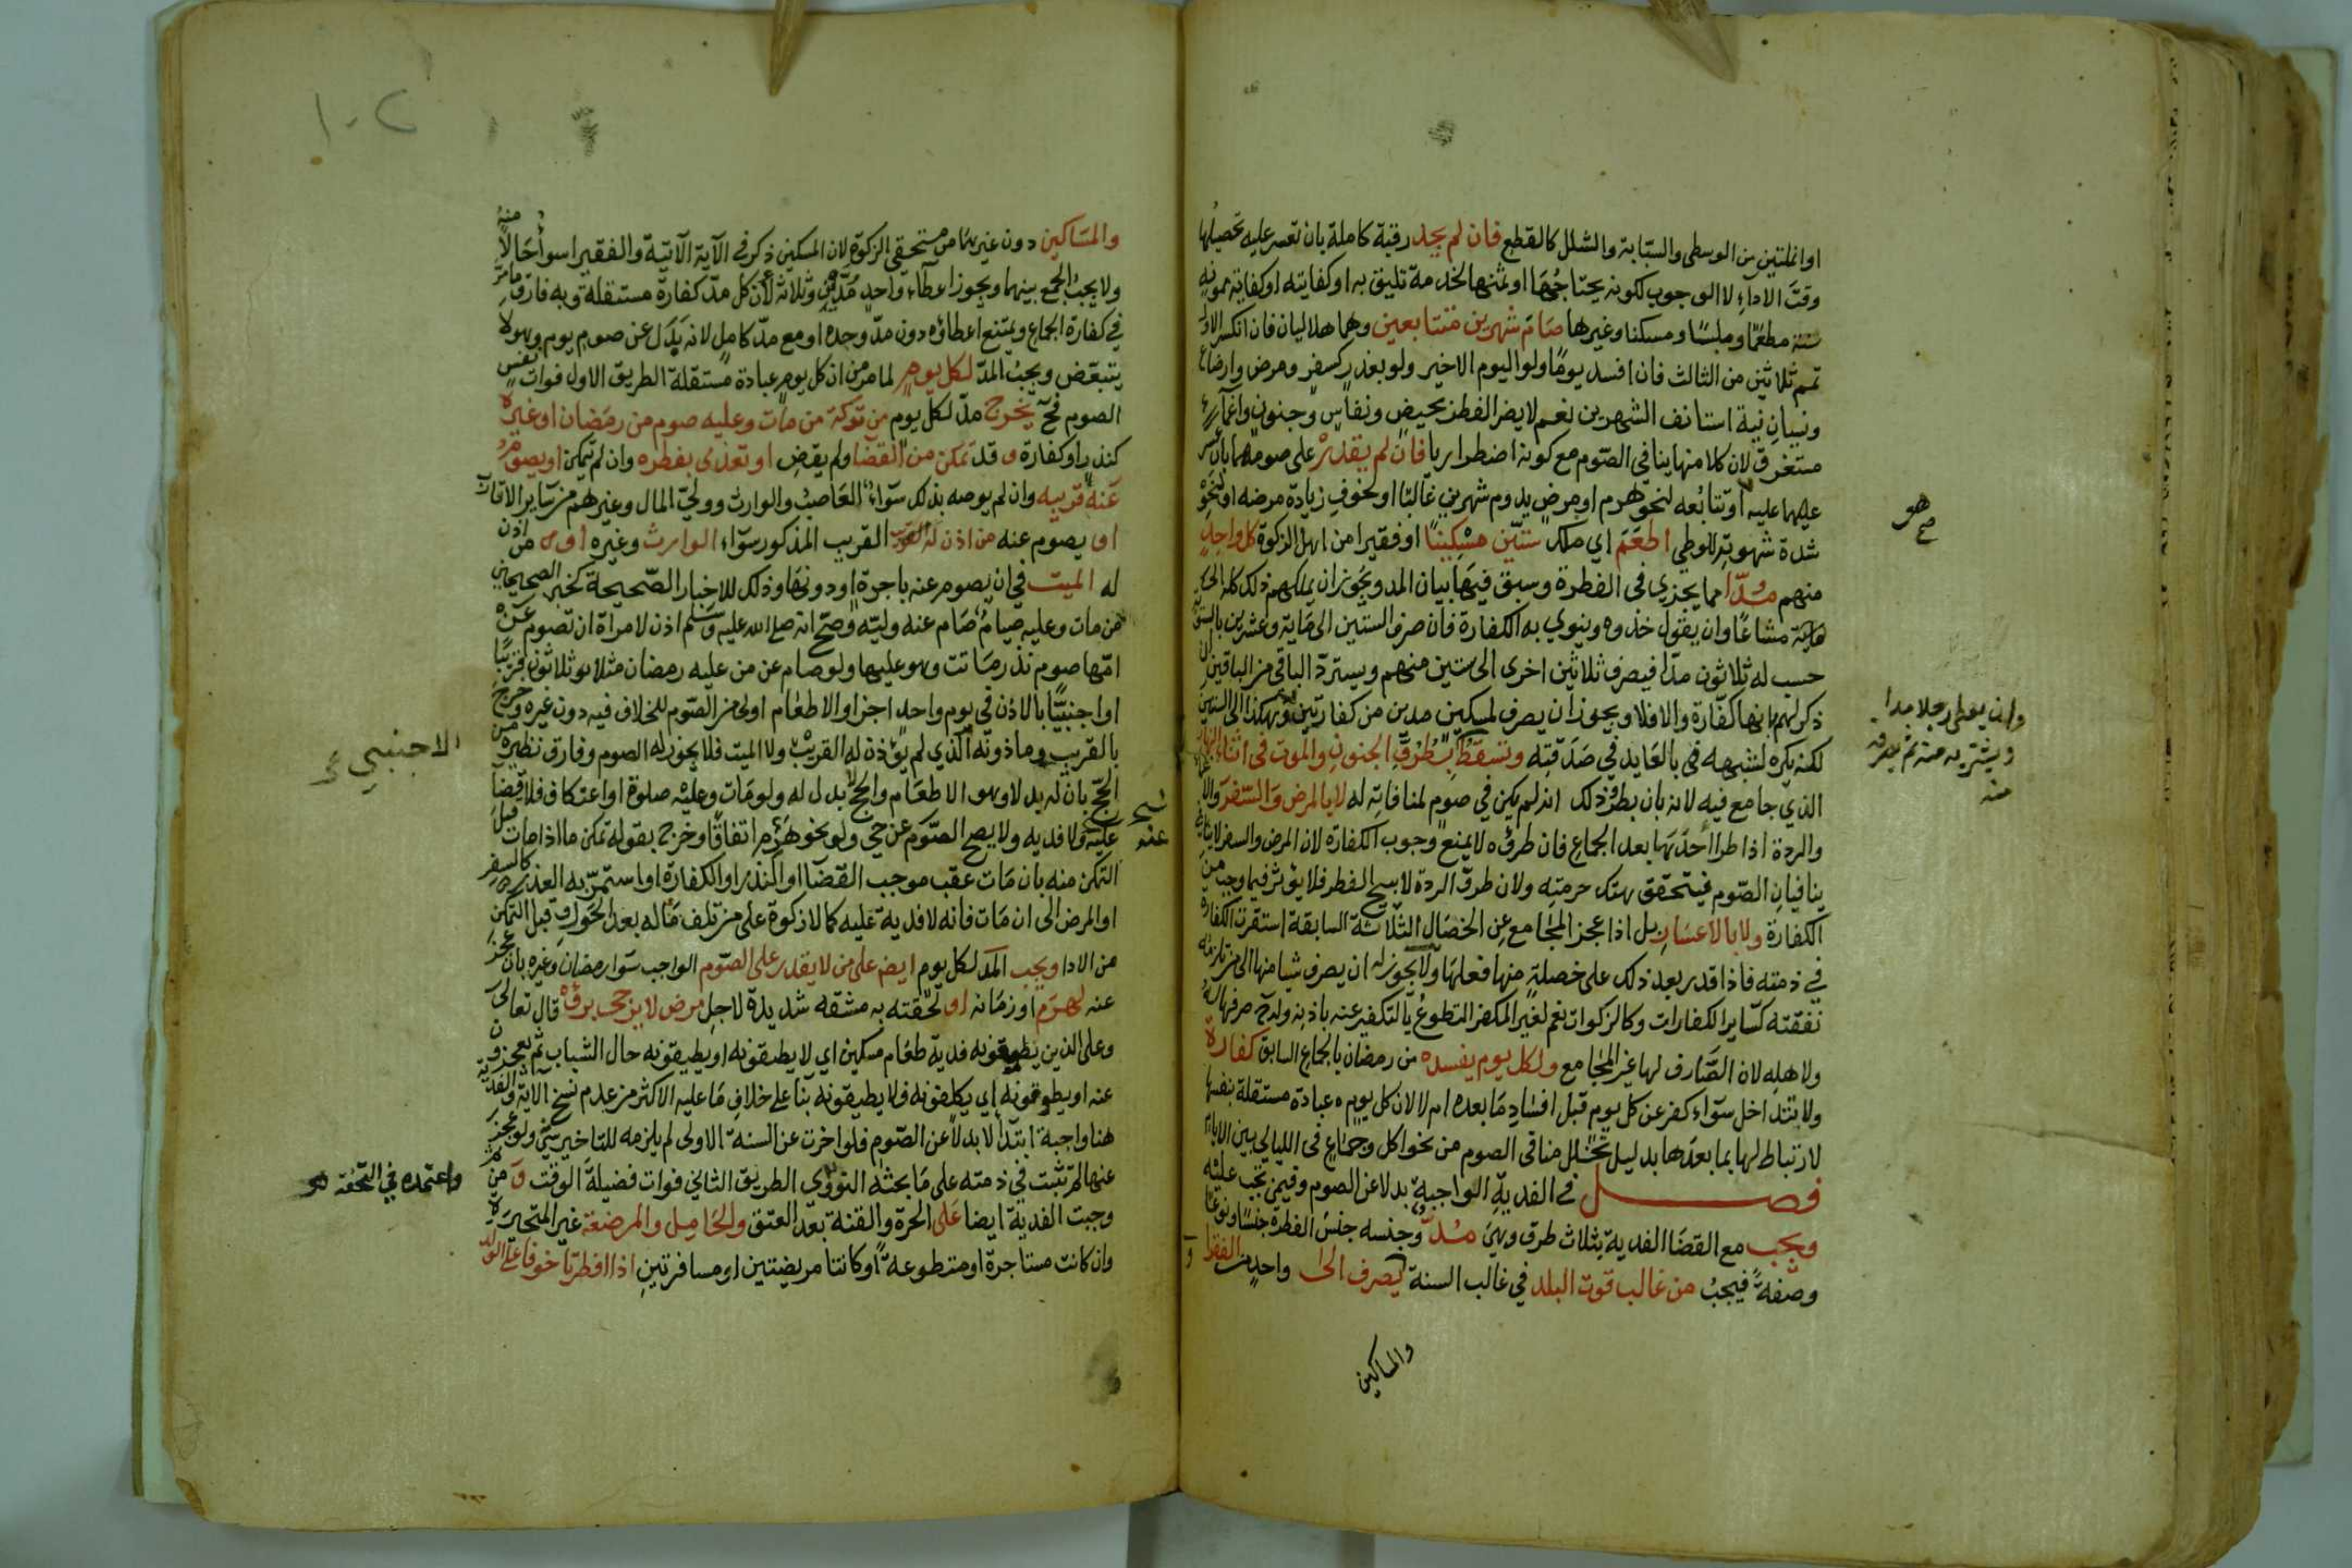 او انملتين من الوسطى والسبابة والشلل كالقطع فان لم يجد رقبة كاملة بان تعسر عليه تحصيلها
وقت الاداء لا الوجوب لكونه يحتاجها او ثمنها لخدمة تليق به او كفايته او كفاية ممونه
سنة مطعما وملبسا ومسكنا وغيرها صام شهرين متتابعين وهما هلاليان فان انكسر الاول
تمم ثلاثين من الثالث فان افسد يوما ولو اليوم الاخير ولو بعذر كسفر ومرض وارضاع
ونسيان نية استانف الشهرين نعم لا يضر الفطر بحيض ونفاس وجنون واغماء
مستغرق لان كلا منها ينافي الصوم مع كونه اضطراريا فان لم يقدر على صومهما بان عسر
عليه او تتابعه لنحو هرم او مرض يدوم شهرين غالبا او لخوف زيادة مرضه او لنحو
شدة شهوته للوطي اطعم اي ملك ستين مسكينا او فقيرا من اهل الزكوة كل واحد
منهم مدا مما يجزي في الفطرة وسبق فيها بيان المد ويجوز ان يملكهم ذلك كله
مشاعا وان يقول خذوه وينوي به الكفارة فان صرف الستين الى ماية وعشرين بالسوية
حسب له ثلاثون مدا فيصرف ثلاثين اخرى الى ستين منهم ويسترد الباقي من الباقين ان
ذكر لهم انها كفارة والا فلا ويجوز ان يصرف لمسكين مدين من كفارتين وهكذا الى الستين
لكنه يكره لشبهه بالعايد في صدقته وتسقط بطرو الجنون والموت في اثناء النهار
الذي جامع فيه لانه بان بطرو ذلك انه لم يكن في صوم لمنافاته له لا بالمرض والسفر
والردة اذا طرا احدها بعد الجماع فان طروه لا يمنع وجوب الكفارة لان المرض والسفر لا
ينافيان الصوم فيتحقق هتك حرمته ولان طرو الردة لا يبيح الفطر فلا يؤثر فيما وجب من
الكفارة ولا بالاعسار بل اذا عجز المجامع عن الخصال الثلاثة السابقة استقرت الكفارة
في ذمته فاذا قدر بعد ذلك على خصلة منها فعلها ولا يجوز له ان يصرف شيا منها الى من تلزمه
نفقته كساير الكفارات وكالزكوات نعم لغير المكفر المتطوع بالتكفير عنه باذنه وله صرفها له
ولاهله لان الصارف لها غير المجامع ولكل يوم يفسده من رمضان بالجماع السابق كفارة
ولا تتداخل سواء كفر عن كل يوم قبل افساد ما بعده ام لا لان كل يوم عبادة مستقلة بنفسها
لا ارتباط لها بما بعدها بدليل تخلل منافي الصوم من نحو اكل وجماع في الليالي بين الايام
فصل في الفدية الواجبة بدلا عن الصوم وفيمن تجب عليه
ويجب مع القضا الفدية بثلاث طرق وهي مد وجنسه جنس الفطرة جنسا ونوعا
وصفة فيجب من غالب قوت البلد في غالب السنة يصرف الى واحد من الفقرا و
والمساكين
وان يعطي رجلا مدا
ويشتريه منه ثم يصرفه
منه
١٠٢
والمساكين دون غيرهما من مستحقي الزكوة لان المسكين ذكر في الآية الآتية والفقير اسوأ حالا منه
ولا يجب الجمع بينهما ويجوز اعطاء واحد مدين وثلاثة لان كل مد كفارة مستقلة وبه فارق ما مر
في كفارة الجماع ويمتنع اعطاؤه دون مد وحده او مع مد كامل لانه بدل عن صوم يوم وهو لا
يتبعض ويجب المد لكل يوم لما مر من ان كل يوم عبادة مستقلة الطريق الاول فوات نفس
الصوم فح يخرج مد لكل يوم من تركة من مات وعليه صوم من رمضان او غيره
كنذر او كفارة وقد تمكن من القضا ولم يقض او تعدى بفطره وان لم يتمكن او يصوم
عنه قريبه وان لم يوصه بذلك سواء العاصب والوارث وولي المال وغيرهم من ساير الاقارب
او يصوم عنه من اذن له القريب المذكور سواء الوارث وغيره او من اذن
له الميت في ان يصوم عنه باجرة او دونها وذلك للاخبار الصحيحة كخبر الصحيحين
من مات وعليه صيام صام عنه وليه وصح انه صلى الله عليه وسلم اذن لامراة ان تصوم عن
امها صوم نذر ماتت وهو عليها ولو صام عن من عليه رمضان مثلا ثلاثون قريبا
او اجنبيا بالاذن في يوم واحد اجزا والاطعام اولى من الصوم للخلاف فيه دون غيره وخرج
بالقريب وماذونه الذي لم يؤذن له القريب ولا الميت فلا يجوز له الصوم وفارق نظيره من
الحج بان له بدلا وهو الاطعام والحج لا بدل له ولو مات وعليه صلوة او اعتكاف فلا قضا
عليه ولا فدية ولا يصح الصوم عن حي ولو نحو هرم اتفاقا وخرج بقوله تمكن ما اذا مات قبل
التمكن منه بان مات عقب موجب القضا او النذر او الكفارة او استمر به العذر كالسفر
او المرض الى ان مات فانه لا فدية عليه كما لا زكوة على من تلف ماله بعد الحول وقبل التمكن
من الادا ويجب المد لكل يوم ايضا على من لا يقدر على الصوم الواجب سوا رمضان وغيره بان عجز
عنه لهرم او زمانه او لحقته به مشقه شديدة لاجل مرض لا يرجى برؤه قال تعالى
وعلى الذين يطيقونه فدية طعام مسكين اي لا يطيقونه او يطيقونه حال الشباب ثم يعجزون
عنه او يطوقونه اي يكلفونه فلا يطيقونه بنا على خلاف ما عليه الاكثر من عدم نسخ الآية والفدية
هنا واجبة ابتدا لا بدلا عن الصوم فلو اخرت عن السنة الاولى لم يلزمه للتاخير شي ولو عجز
عنها لم تثبت في ذمته على ما بحثه النووي الطريق الثاني فوات فضيلة الوقت ومن ثم
وجبت الفدية ايضا على الحرة والقنة بعد العتق والحامل والمرضعة غير المتحيرة
وان كانت مستاجرة او متطوعة او كانتا مريضتين او مسافرتين اذا افطرتا خوفا على الولد
الاجنبي
واعتمده في التحفة